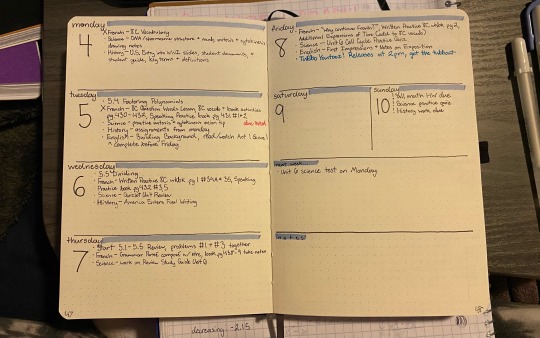 monday
4
French - 8C Vocabulary
Science - DNA/chromosome structure + ready, mitosis + cytokinesis
drawing notes
History - U.S. Entry into WWI slides, student documents, +
student guide, key terms + definitions
tuesday
5
5.4 Factoring Polynomials
French - 8C Question Words Lesson, 8C vocab + book activities
pg 430-432, Speaking Practice book pg 431 #1+2
Science - practice mitosis + cytokinesis
History - assignments from monday
English - Building Background, Read/Watch Act 1 Scene 1
^ complete before Friday
wednesday
6
5.5 Dividing
French - Written Practice 8C wkbk pg 1 + 35, Speaking
Practice book pg 432 #3,5
Science -
History - America Enters Final Writing
thursday
7
Start 5.1-5.5 Review, problems #1 + #3 together
French - Grammar book pg 438-9 take notes
Science - work on Review Study Guide Unit 6
47
friday
8
French - Written Practice 8C wkbk pg 2,
Additional Expressions of Time
Science - Unit 6 Cell Cycle Practice Quiz
English - First Impressions + Notes on Exposition
Releases at 2pm, get the
saturday
9
sunday
10
! All math HW due
! Science practice quiz
! History work due
next week
- Unit 6 science test on Monday
notes
decreasing -2.15